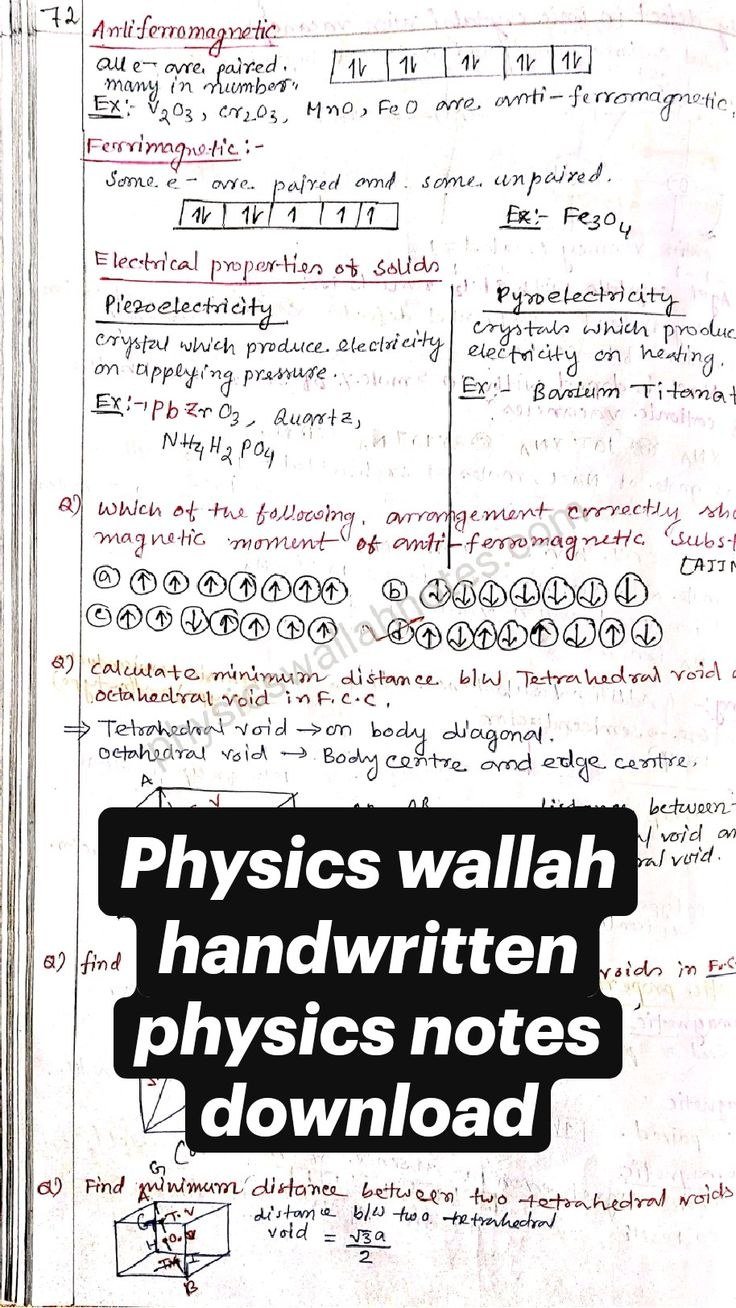 72
Antiferromagnetic
all e- are paired.
many in number.
Ex:- V2O3, Cr2O3, MnO, FeO are anti-ferromagnetic,
Ferrimagnetic:-
Some e- are paired and some unpaired.
Ex:- Fe3O4
Electrical properties of solids
Piezoelectricity
crystal which produce electricity
on applying pressure.
Ex:→ PbZrO3, Quartz,
NH4H2PO4
Pyroelectricity
crystals which produc
electricity on heating.
Ex:- Barium Titanat
Q) which of the following, arrangement correctly sho
magnetic moment of anti-ferromagnetic subst
[AIIM
a ↑ ↑ ↑ ↑ ↑ ↑ ↑ b ↓ ↓ ↓ ↓ ↓ ↓ ↓
c ↑ ↑ ↓ ↑ ↑ ↑ ↑ d ↑ ↓ ↑ ↓ ↑ ↓ ↑ ↓
physicswallahnotes.com
Q) calculate minimum distance b/w Tetrahedral void
octahedral void in F.C.C.
⇒ Tetrahedral void → on body diagonal.
octahedral void → Body centre and edge centre.
A
between
void an
ral void.
Physics wallah
handwritten
physics notes
download
Q) find
voids in F.C
G
Q) Find minimum distance between two tetrahedral voids
distance b/w two tetrahedral
void = √3a/2
A
T.V
H
B